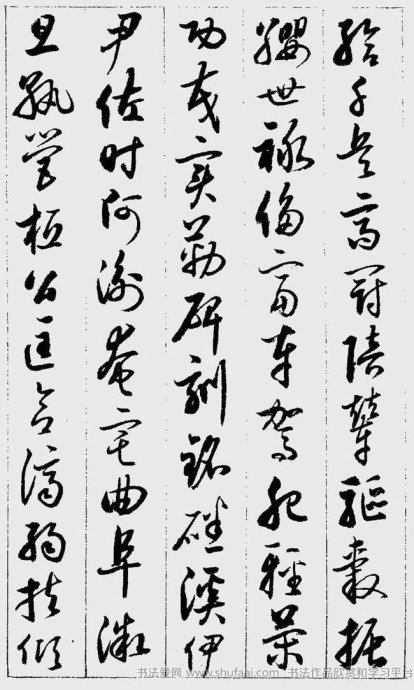 給千兵高冠陪輦驅轂振
纓世祿侈富車駕肥輕策
功茂實勒碑刻銘磻溪伊
尹佐時阿衡奄宅曲阜微
旦孰營桓公匡合濟弱扶傾
书法爱网 www.shufaai.com 书法作品欣赏和学习平台